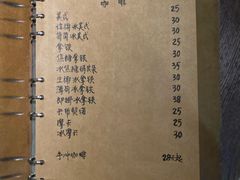 咖啡
美式 25
冰美式 30
冰美式 30
拿铁 25
焦糖拿铁 30
冰焦糖玛 35
生椰冰拿铁 30
薄荷冰拿铁 30
椰冰拿铁 38
卡布奇诺 25
摩卡 25
冰摩卡 30
手冲咖啡 28元起